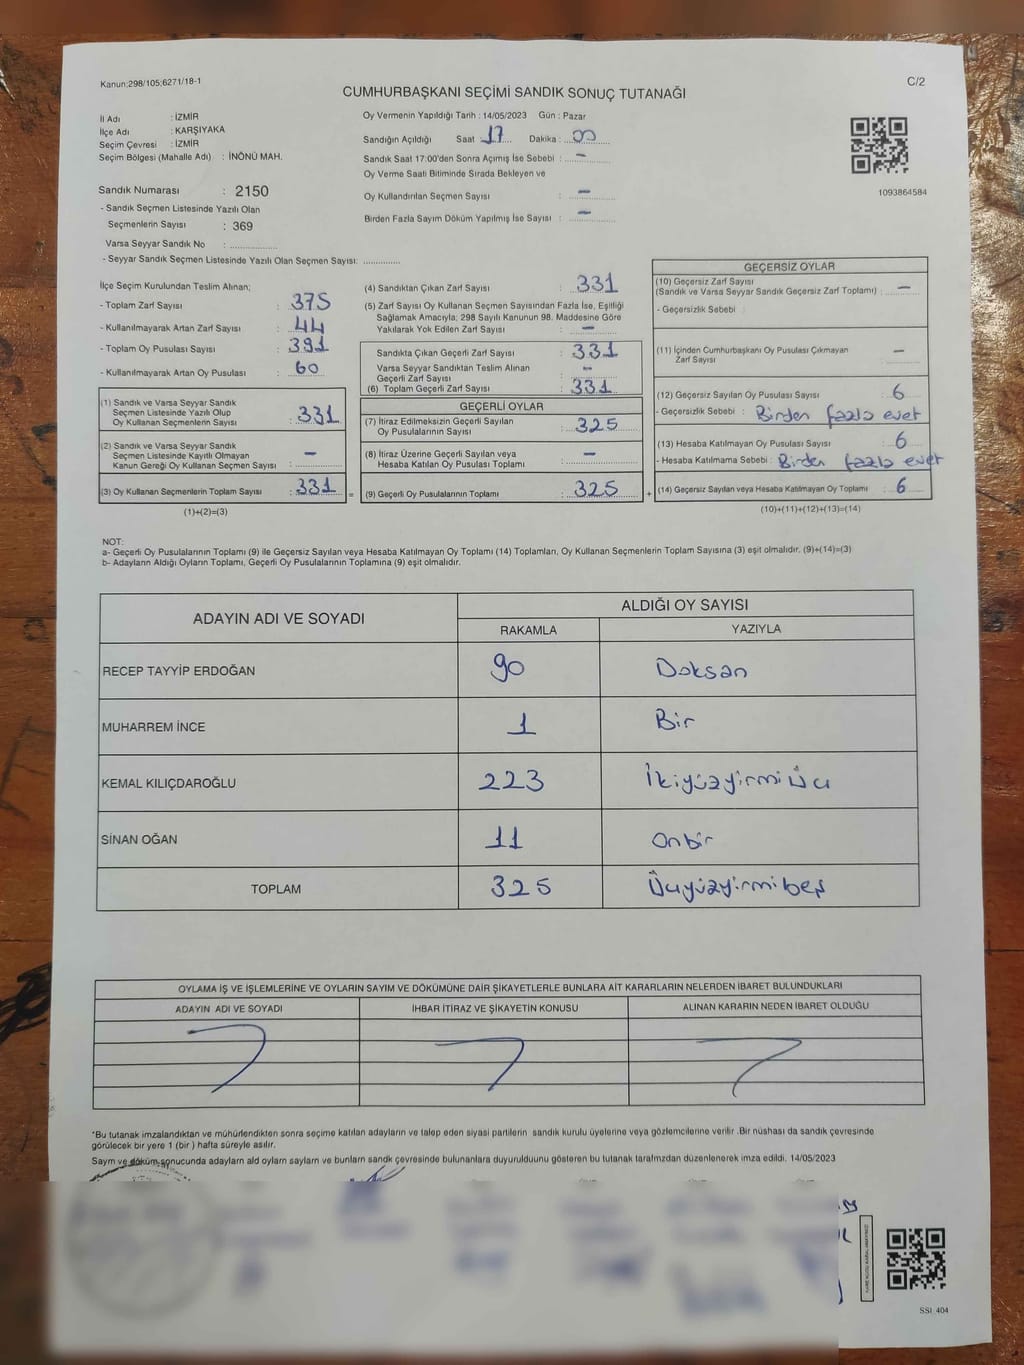 Kanun;298/105;6271/18-1
C/2
CUMHURBAŞKANI SEÇİMİ SANDIK SONUÇ TUTANAĞI
İl Adı : İZMİR
İlçe Adı : KARŞIYAKA
Seçim Çevresi : İZMİR
Seçim Bölgesi (Mahalle Adı) : İNÖNÜ MAH.
Oy Vermenin Yapıldığı Tarih : 14/05/2023 Gün : Pazar
Sandığın Açıldığı Saat : 17 Dakika : 00
Sandık Saat 17:00'den Sonra Açımış İse Sebebi : -
Oy Verme Saati Bitiminde Sırada Bekleyen ve
Oy Kullandırılan Seçmen Sayısı : -
Birden Fazla Sayım Döküm Yapılmış İse Sayısı : -
1093864584
Sandık Numarası : 2150
- Sandık Seçmen Listesinde Yazılı Olan
Seçmenlerin Sayısı : 369
Varsa Seyyar Sandık No : ..............
- Seyyar Sandık Seçmen Listesinde Yazılı Olan Seçmen Sayısı: ..............
İlçe Seçim Kurulundan Teslim Alınan;
- Toplam Zarf Sayısı : 375
- Kullanılmayarak Artan Zarf Sayısı : 44
- Toplam Oy Pusulası Sayısı : 391
- Kullanılmayarak Artan Oy Pusulası : 60
(1) Sandık ve Varsa Seyyar Sandık
Seçmen Listesinde Yazılı Olup
Oy Kullanan Seçmenlerin Sayısı : 331
(2) Sandık ve Varsa Seyyar Sandık
Seçmen Listesinde Kayıtlı Olmayan
Kanun Gereği Oy Kullanan Seçmen Sayısı : -
(3) Oy Kullanan Seçmenlerin Toplam Sayısı : 331 =
(1)+(2)=(3)
(4) Sandıktan Çıkan Zarf Sayısı : 331
(5) Zarf Sayısı Oy Kullanan Seçmen Sayısından Fazla İse, Eşitliği
Sağlamak Amacıyla; 298 Sayılı Kanunun 98. Maddesine Göre
Yakılarak Yok Edilen Zarf Sayısı : -
Sandıkta Çıkan Geçerli Zarf Sayısı : 331
Varsa Seyyar Sandıktan Teslim Alınan
Geçerli Zarf Sayısı : -
(6) Toplam Geçerli Zarf Sayısı : 331
GEÇERLİ OYLAR
(7) İtiraz Edilmeksizin Geçerli Sayılan
Oy Pusulalarının Sayısı : 325
(8) İtiraz Üzerine Geçerli Sayılan veya
Hesaba Katılan Oy Pusulası Toplamı : -
(9) Geçerli Oy Pusulalarının Toplamı : 325 +
GEÇERSİZ OYLAR
(10) Geçersiz Zarf Sayısı
(Sandık ve Varsa Seyyar Sandık Geçersiz Zarf Toplamı) : -
- Geçersizlik Sebebi :
(11) İçinden Cumhurbaşkanı Oy Pusulası Çıkmayan
Zarf Sayısı : -
(12) Geçersiz Sayılan Oy Pusulası Sayısı : 6
- Geçersizlik Sebebi : Birden fazla evet
(13) Hesaba Katılmayan Oy Pusulası Sayısı : 6
- Hesaba Katılmama Sebebi : Birden fazla evet
(14) Geçersiz Sayılan veya Hesaba Katılmayan Oy Toplamı : 6
(10)+(11)+(12)+(13)=(14)
NOT:
a- Geçerli Oy Pusulalarının Toplamı (9) ile Geçersiz Sayılan veya Hesaba Katılmayan Oy Toplamı (14) Toplamları, Oy Kullanan Seçmenlerin Toplam Sayısına (3) eşit olmalıdır. (9)+(14)=(3)
b- Adayların Aldığı Oyların Toplamı, Geçerli Oy Pusulalarının Toplamına (9) eşit olmalıdır.
ADAYIN ADI VE SOYADI
ALDIĞI OY SAYISI
RAKAMLA YAZIYLA
RECEP TAYYİP ERDOĞAN 90 Doksan
MUHARREM İNCE 1 Bir
KEMAL KILIÇDAROĞLU 223 İkiyüzyirmi üç
SİNAN OĞAN 11 Onbir
TOPLAM 325 Üçyüzyirmibeş
OYLAMA İŞ VE İŞLEMLERİNE VE OYLARIN SAYIM VE DÖKÜMÜNE DAİR ŞİKAYETLERLE BUNLARA AİT KARARLARIN NELERDEN İBARET BULUNDUKLARI
ADAYIN ADI VE SOYADI İHBAR İTİRAZ VE ŞİKAYETİN KONUSU ALINAN KARARIN NEDEN İBARET OLDUĞU
*Bu tutanak imzalandıktan ve mühürlendikten sonra seçime katılan adayların ve talep eden siyasi partilerin sandık kurulu üyelerine veya gözlemcilerine verilir .Bir nüshası da sandık çevresinde
görülecek bir yere 1 (bir ) hafta süreyle asılır.
Sayım ve döküm sonucunda adayların ald oyların sayların ve bunların sandk çevresinde bulunanlara duyurulduunu gösteren bu tutanak tarafmzdan düzenlenerek imza edildi. 14/05/2023
SSI_404